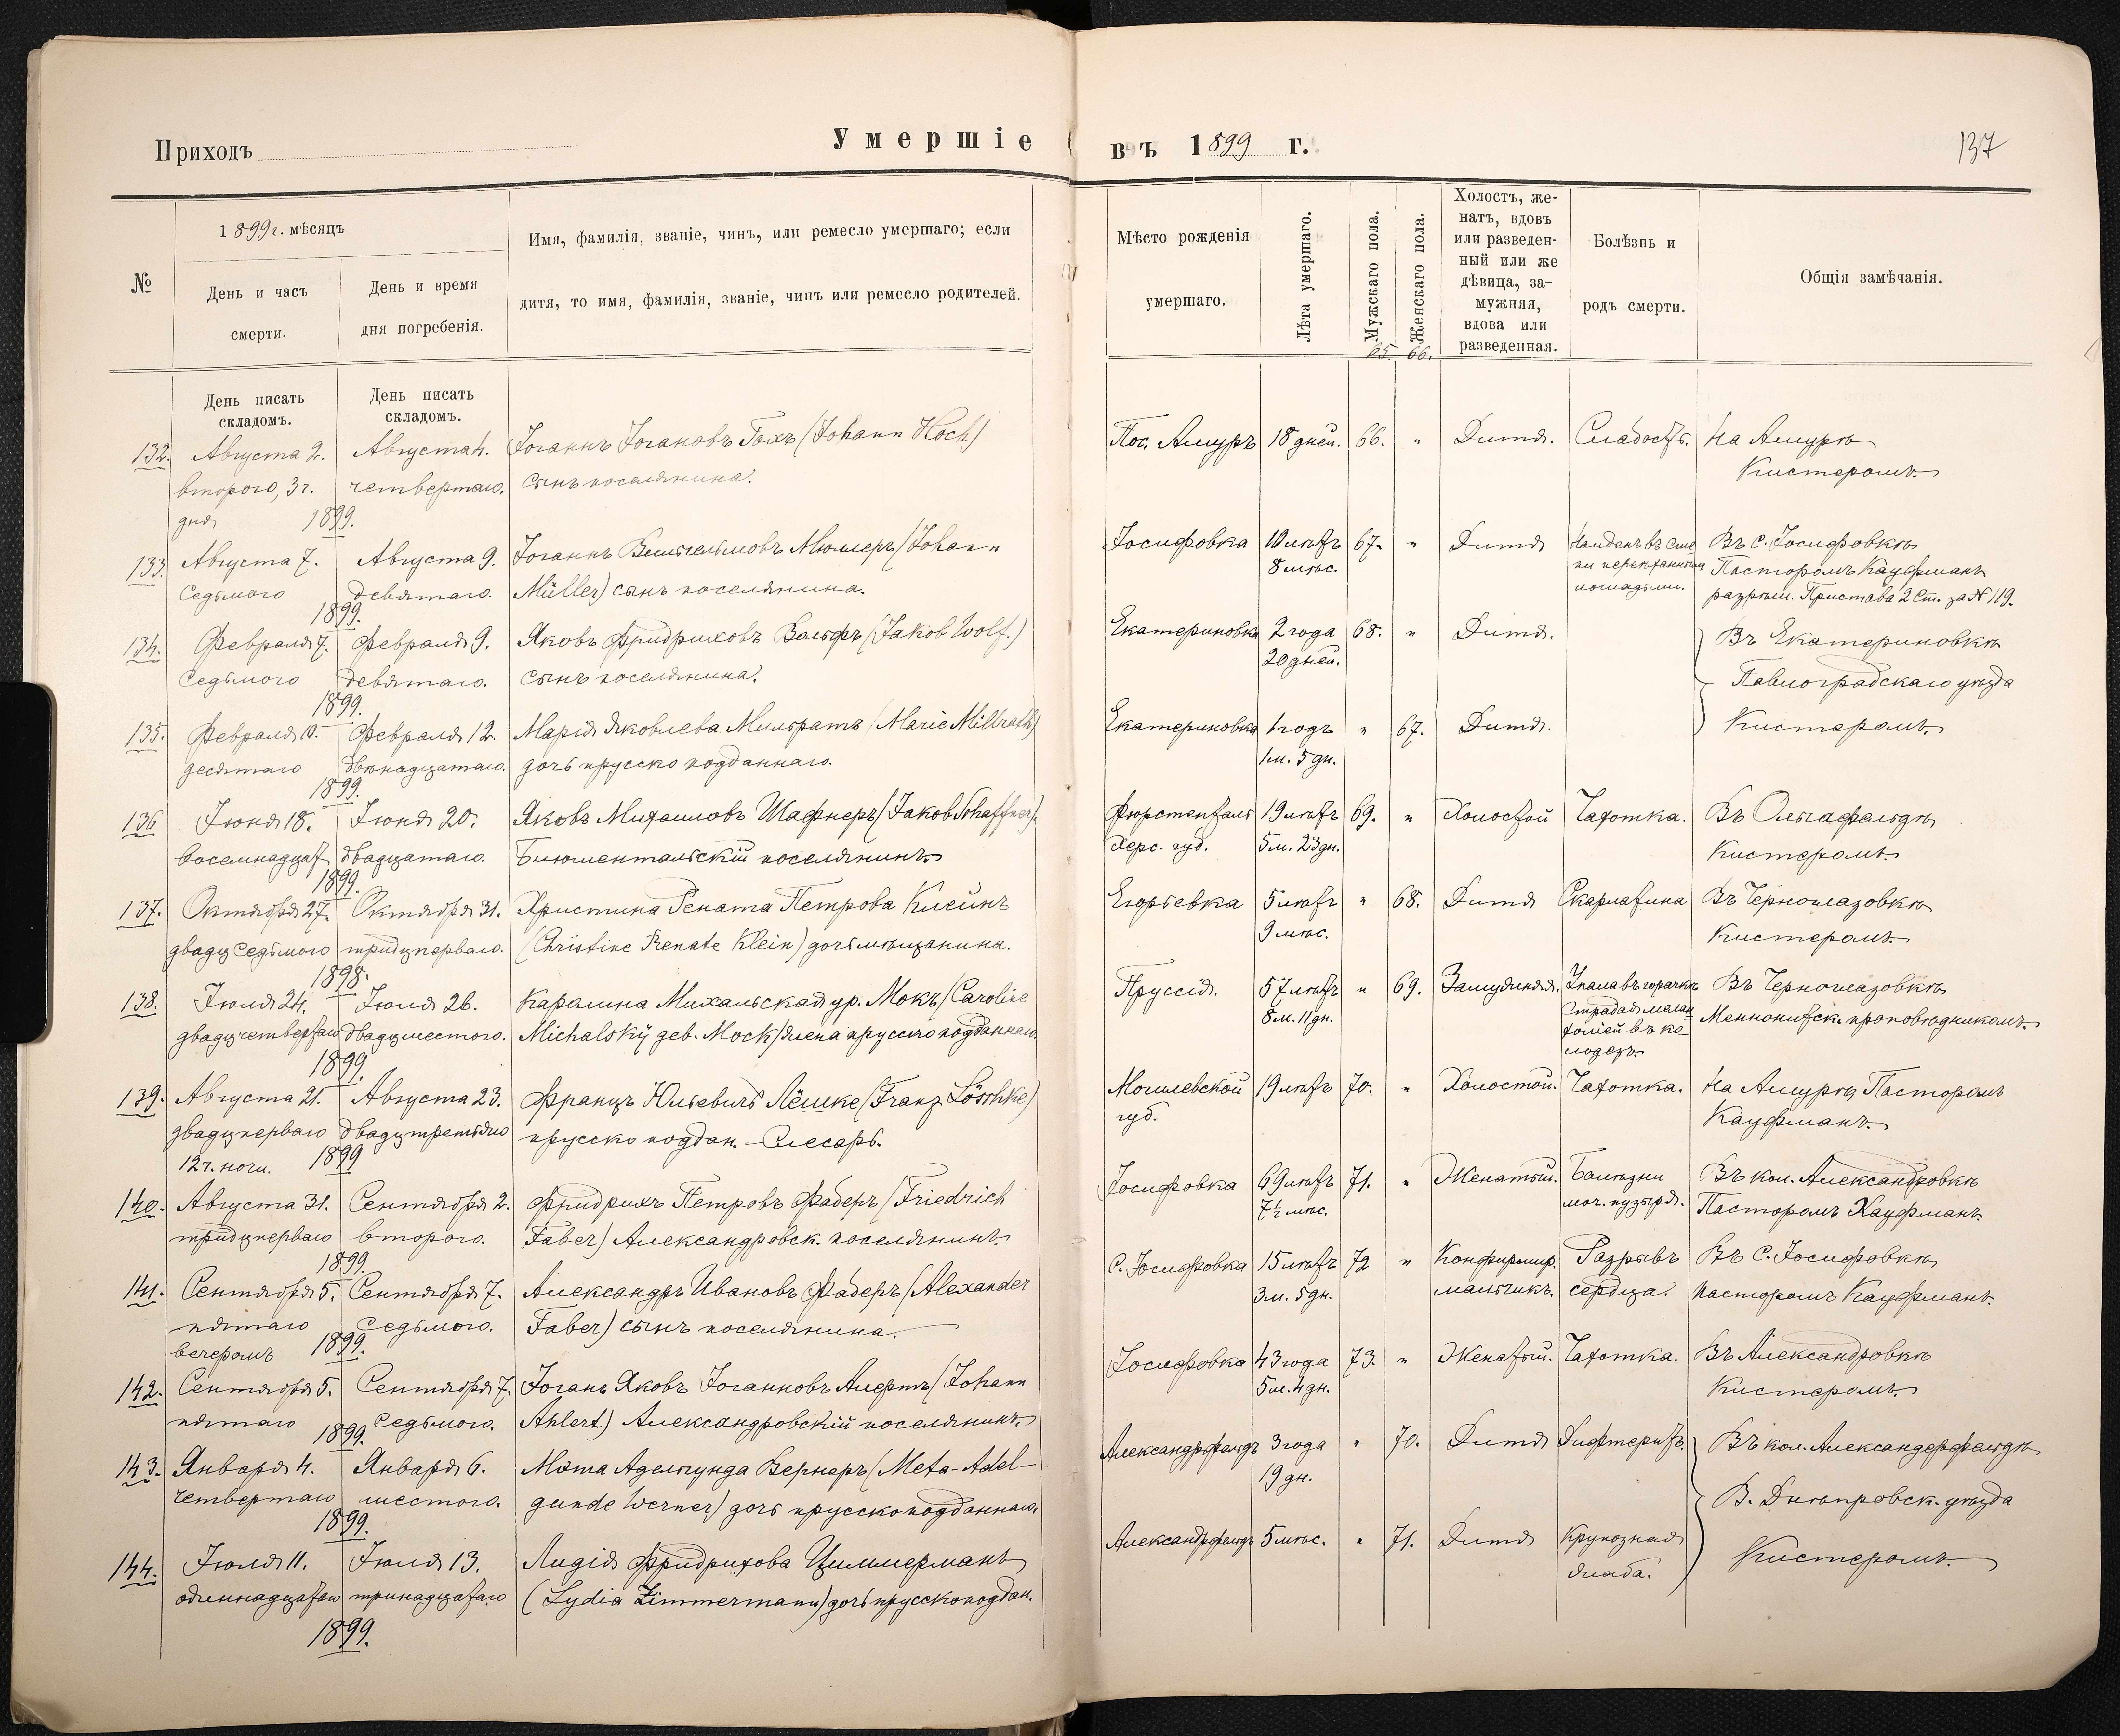 Приходъ
Умершіе
въ 1899 г.
137
№
1899 г. мѣсяцъ
День и часъ
смерти.
День и время
дня погребенія.
Имя, фамилія, званіе, чинъ, или ремесло умершаго; если
дитя, то имя, фамилія, званіе, чинъ или ремесло родителей.
Мѣсто рожденія
умершаго.
Лѣта умершаго.
Мужскаго пола.
Женскаго пола.
65. 66.
Холостъ, же-
натъ, вдовъ
или разведен-
ный или же
дѣвица, за-
мужняя,
вдова или
разведенная.
Болѣзнь и
родъ смерти.
Общія замѣчанія.
День писать
складомъ.
День писать
складомъ.
132. Августа 2. Августа 4. Іоганнъ Іогановъ Гохъ (Johann Hoch) Пос. Амуръ 18 дней. 66. " Дитя. Слабость. На Амурѣ
второго, 3 ч. четвертаго. сынъ поселянина. Кистеромъ.
дня 1899.
133. Августа 7. Августа 9. Іоганнъ Вильгельмовъ Мюллеръ (Johann Іосифовка 10 лѣтъ 67. " Дитя Найденъ въ Въ с. Іосифовкѣ
Седьмого девятаго. Müller) сынъ поселянина. 8 мѣс. Пасторомъ Кауфманъ
1899. лошадьми. разрѣш. Пристава 2 ст. за № 119.
134. Февраля 7. Февраля 9. Яковъ Фридриховъ Вольфъ (Jakob Wolf.) Екатериновка 2 года 68. " Дитя. Въ Екатериновкѣ
Седьмого девятаго. сынъ поселянина. 20 дней. Павлоградскаго уѣзда
1899.
135. Февраля 10. Февраля 12. Марія Яковлева Мильратъ (Marie Milbrath) Екатериновка 1 годъ " 67. Дитя. Кистеромъ.
десятаго двѣнадцатаго. дочь прусско подданнаго. 1 м. 5 дн.
1899.
136 Іюня 18. Іюня 20. Яковъ Михаиловъ Шафнеръ (Jakob Schaffner) Фюрстенталь 19 лѣтъ 69. " Холостой Чахотка. Въ Ольгафельдѣ
восемнадцат двадцатаго. Блюментальскій поселянинъ. Херс. губ. 5 м. 23 дн. Кистеромъ.
1899.
137. Октября 27. Октября 31. Христина Рената Петрова Клейнъ Егорьевка 5 лѣтъ " 68. Дитя Скарлатина Въ Черноглазовкѣ
двадц седьмого тридц перваго. (Christine Renate Klein) дочь мѣщанина. 9 мѣс. Кистеромъ.
1898.
138. Іюля 24. Іюля 26. Каролина Михальская ур. Мокъ (Caroline Пруссія. 57 лѣтъ " 69. Замужняя. Упала въ горячкѣ Въ Черноглазовкѣ
двадц четвертаго двадц шестого. Michalskÿ дев. Mock) жена прусско подданнаго 8 м. 11 дн. страдая мелан Меннонитск. проповѣдникомъ.
холіей въ ко-
лодезь.
1899.
139. Августа 21. Августа 23. Францъ Юльевичъ Лёшке (Franz Löschke) Могилевской 19 лѣтъ 70. " Холостой. Чахотка. На Амурѣ, Пасторомъ
двадц перваго двадц третьяго прусско поддан. – Слесарь. губ. Кауфманъ.
12 ч. ночи. 1899
140. Августа 31. Сентября 2. Фридрихъ Петровъ Фаберъ (Friedrich Іосифовка 69 лѣтъ 71. " Женатый. Болѣзни Въ кол. Александровкѣ
тридц перваго второго. Faber) Александровск. поселянинъ. 7½ мѣс. моч. пузыря. Пасторомъ Кауфманъ.
1899.
141. Сентября 5. Сентября 7. Александръ Ивановъ Фаберъ (Alexander С. Іосифовка 15 лѣтъ 72 " Конфирмир. Разрывъ Въ с. Іосифовкѣ
пятаго седьмого. Faber) сынъ поселянина. 3 м. 5 дн. мальчикъ. сердца. Пасторомъ Кауфманъ.
вечеромъ 1899.
142. Сентября 5. Сентября 7. Іоганъ Яковъ Іоганновъ Алертъ (Johann Іосифовка 43 года 73. " Женатый. Чахотка. Въ Александровкѣ
пятаго седьмого. Ahlert) Александровскій поселянинъ. 5 м. 4 дн. Кистеромъ.
1899.
143. Января 4. Января 6. Мета Аделгунда Вернеръ (Meta-Adel- Александрфельдъ 3 года " 70. Дитя Дифтеритъ. Въ кол. Александерфельдѣ
четвертаго шестого. gunde Werner) дочь прусскоподданнаго. 19 дн. В. Днѣпровск. уѣзда
1899.
144. Іюля 11. Іюля 13. Лидія Фридрихова Циммерманъ Александрфельдъ 5 мѣс. " 71. Дитя Крупозная Кистеромъ.
одиннадцатаго тринадцатаго (Lydia Zimmermann) дочь прусскоподдан. жаба.
1899.